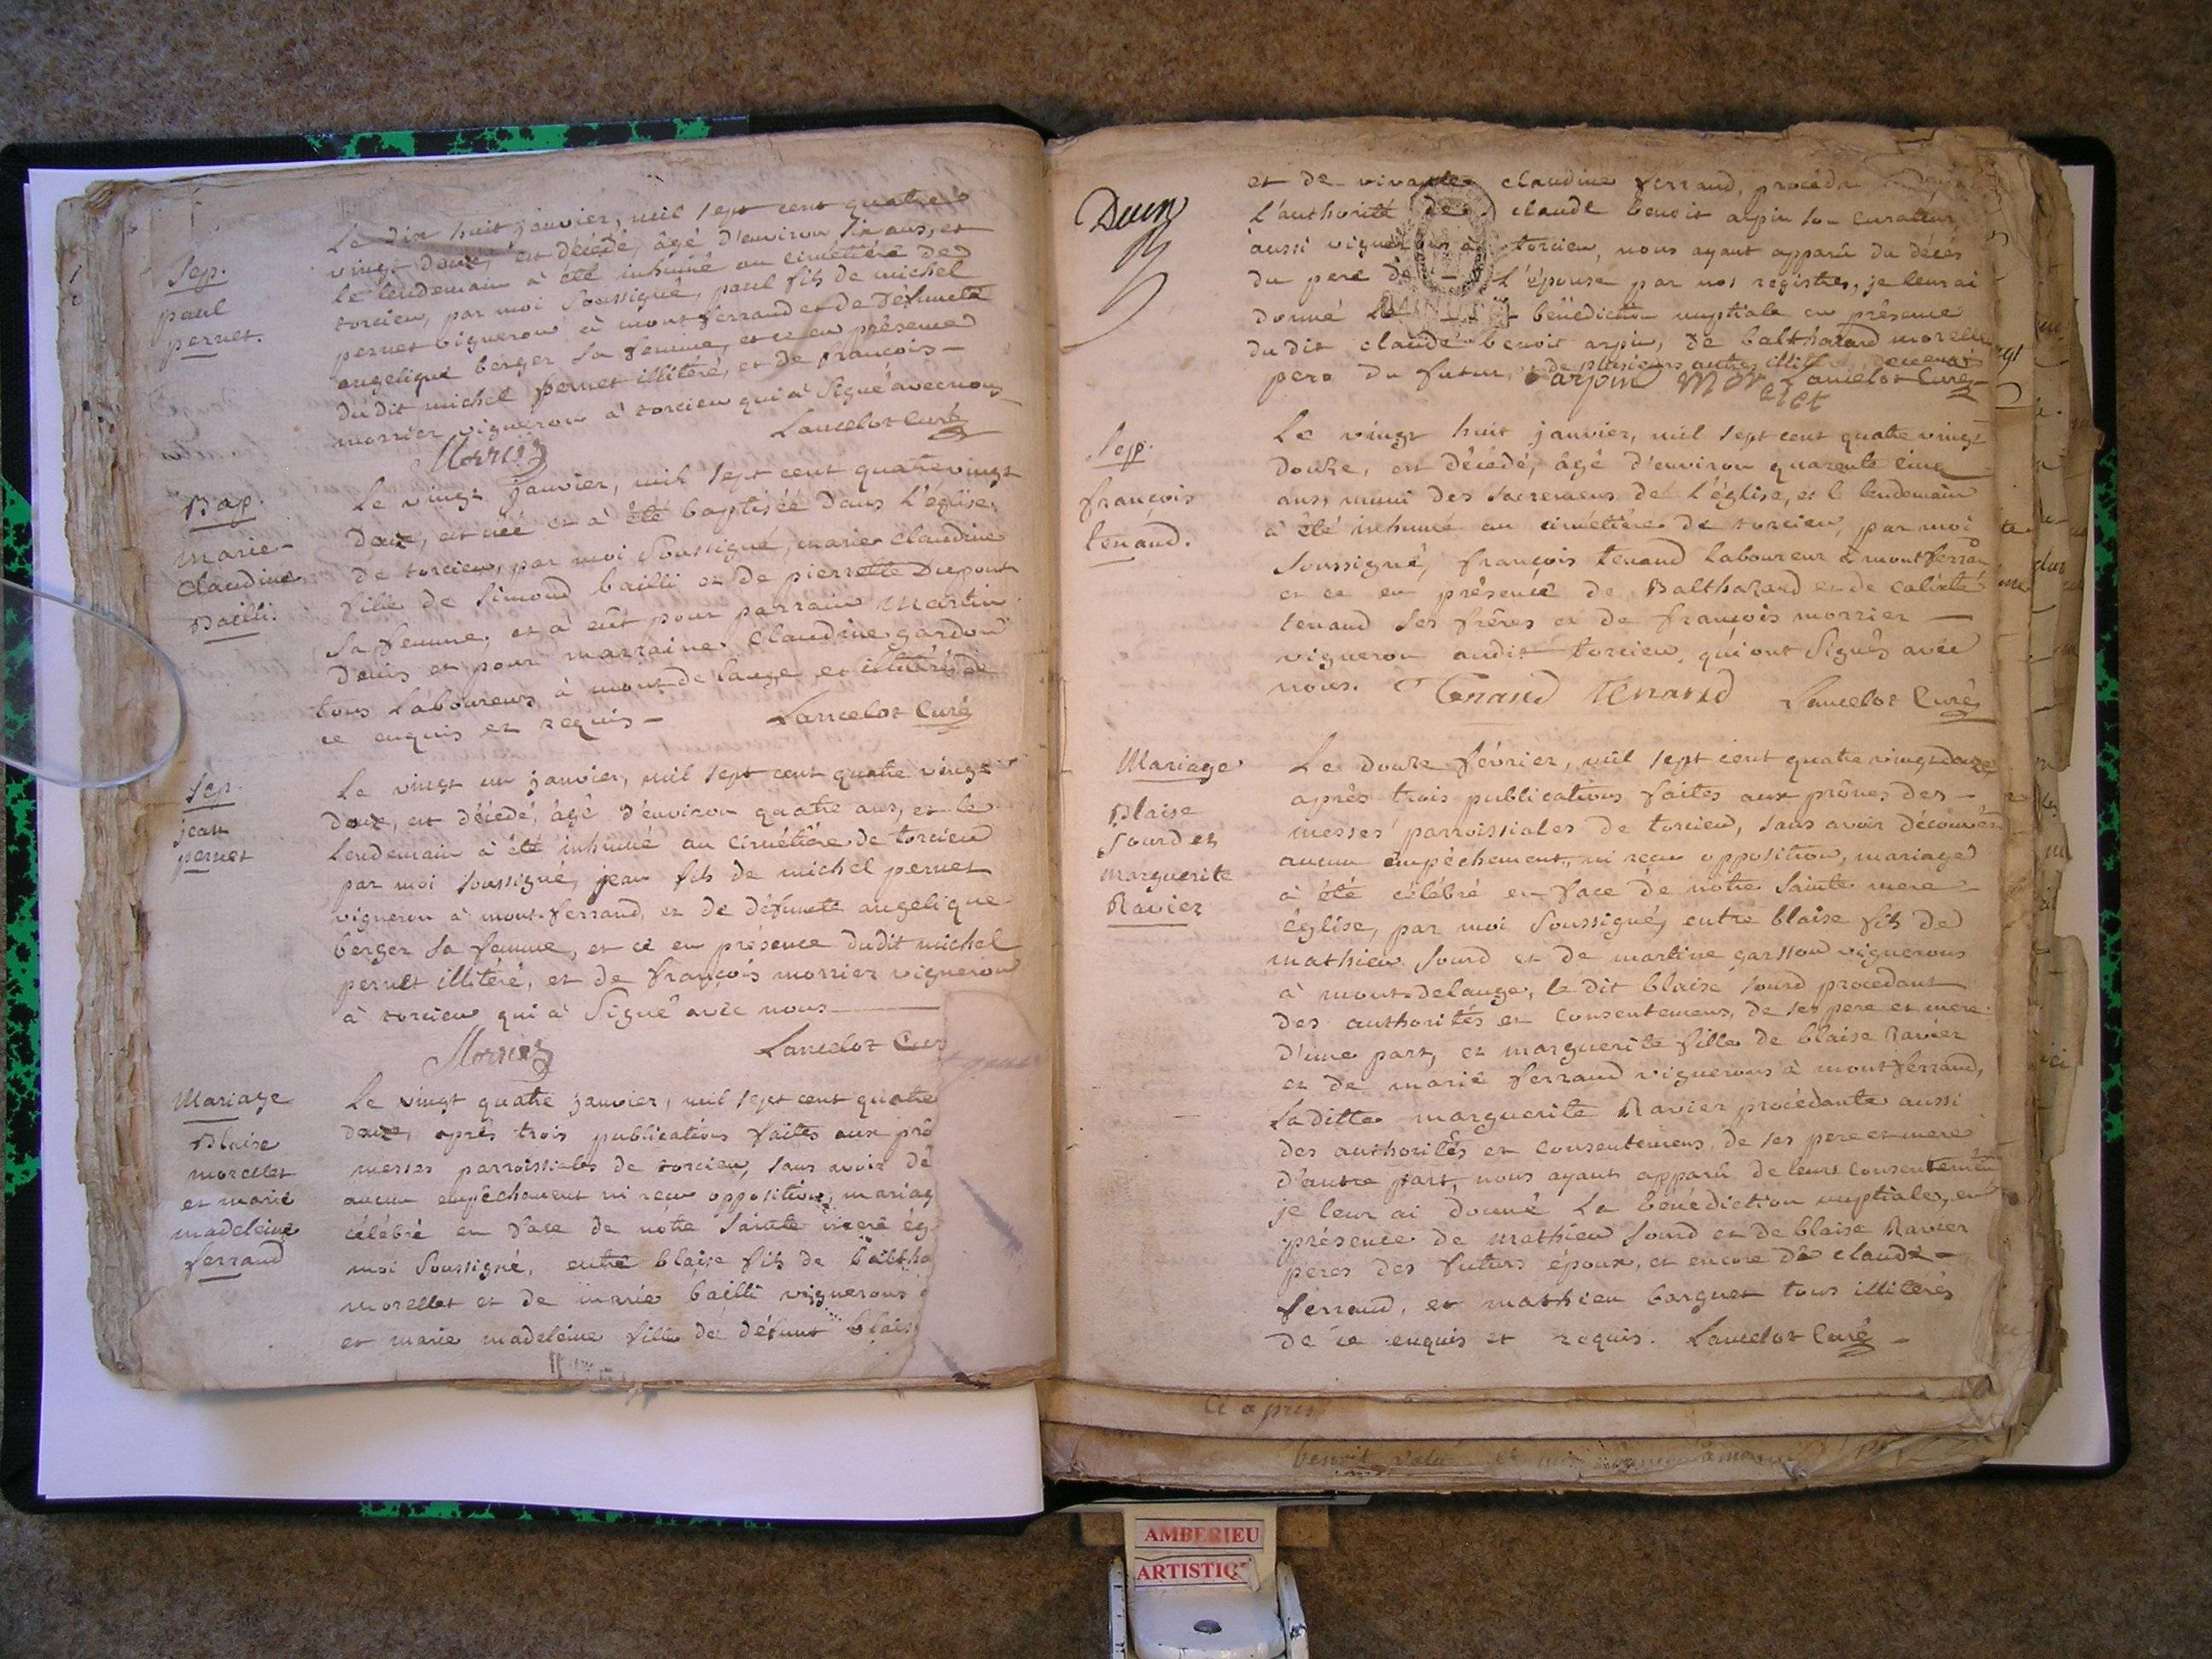 Sep.
paul
pernet.
Le dix huit janvier, mil sept cent quatre
vingt douze, est décédé, âgé d'environ six ans, et
le lendemain à été inhumé au cimétiére de
torcieu, par moi soussigné, paul fils de michel
pernet vigneron à montferrand et de défuncte
angelique berger sa femme, et ce en présence
dudit michel pernet illitéré, et de françois
morrier vigneron à torcieu qui à signé avec nous
Morrier Lancelot Curé
Bap.
marie
Claudine
Bailli.
Le vingt janvier, mil sept cent quatre vingt
douze, est née et à été baptisée dans l'église
de torcieu, par moi soussigné, marie claudine
fille de simond bailli et de pierrette Dupont
sa femme, et à eût pour parrain martin
Denis et pour marraine Claudine gardon
tous laboureurs à mont de lange, et illitérés de
ce enquis et requis - Lancelot Curé
Sep.
jean
pernet
Le vingt un janvier, mil sept cent quatre vingt
douze, est décédé, âgé d'environ quatre ans, et le
lendemain à été inhumé au cimétiére de torcieu
par moi soussigné, jean fils de michel pernet
vigneron à mont-ferrand, et de défuncte angelique
berger sa femme, et ce en présence dudit michel
pernet illitéré, et de françois morrier vigneron
à torcieu qui à signé avec nous
Morrier Lancelot Cur
Mariage
Blaise
morellet
et marie
madeleine
ferrand
Le vingt quatre janvier, mil sept cent quatre
douze, après trois publications faites aux prô
messes parroissiales de torcieu, sans avoir dé
aucun empêchement ni reçu opposition, mariag
célébré en face de nôtre sainte mere ég
moi soussigné, entre blaise fils de baltha
morellet et de marie bailli vignerons
et marie madeleine fille de défunt blais
et de vivante claudine ferrand, procéda
l'authorité de claude benoit arpin son curateur
aussi vignerons à torcieu, nous ayant apparû du décès
du pere de l'épouse par nos registres, je leur ai
donné la bénédiction nuptiale en présence
dudit claude benoit arpin, de balthazard morellet
pere du futur, et de plusieurs autres
arpin Morelet Lancelot Curé
Sep.
françois
tenand.
Le vingt huit janvier, mil sept cent quatre vingt
douze, est décédé, âgé d'environ quarente cinq
ans, muni des sacremens de l'église, et le lendemain
à été inhumé au cimétiére de torcieu, par moi
soussigné, françois tenand laboureur à montferran
et ce en présence de Balthazard et de
tenand ses frères et de françois morrier
vigneron audit torcieu, qui ont signés avec
nous. Tenand tenand Lancelot Curé
Mariage
Blaise
Sourd et
marguerite
Ravier
Le douze février, mil sept cent quatre vingt douze,
après trois publications faites aux prônes des
messes parroissiales de torcieu, sans avoir découvert
aucun empêchement, ni reçu opposition, mariage
à été célébré en face de nôtre sainte mere
église, par moi soussigné, entre blaise fils de
mathieu sourd et de martine garsson vignerons
à mont-delange, le dit blaise sourd procédant
des authorités et consentemens, de ses pere et mere
d'une part, et marguerite fille de blaise Ravier
et de marie ferrand vignerons à montferrand,
laditte marguerite Ravier procédante aussi
des authorités et consentemens, de ses pere et mere
d'autre part, nous ayant apparû de leurs consentemen
je leur ai donné la bénédiction nuptiale, en
présence de mathieu sourd et de blaise Ravier
peres des futurs époux, et encore de claude
ferrand, et mathieu barguet tous illitérés
de ce enquis et requis. Lancelot Curé
Ci apres
benoit
AMBERIEU
ARTISTIQ